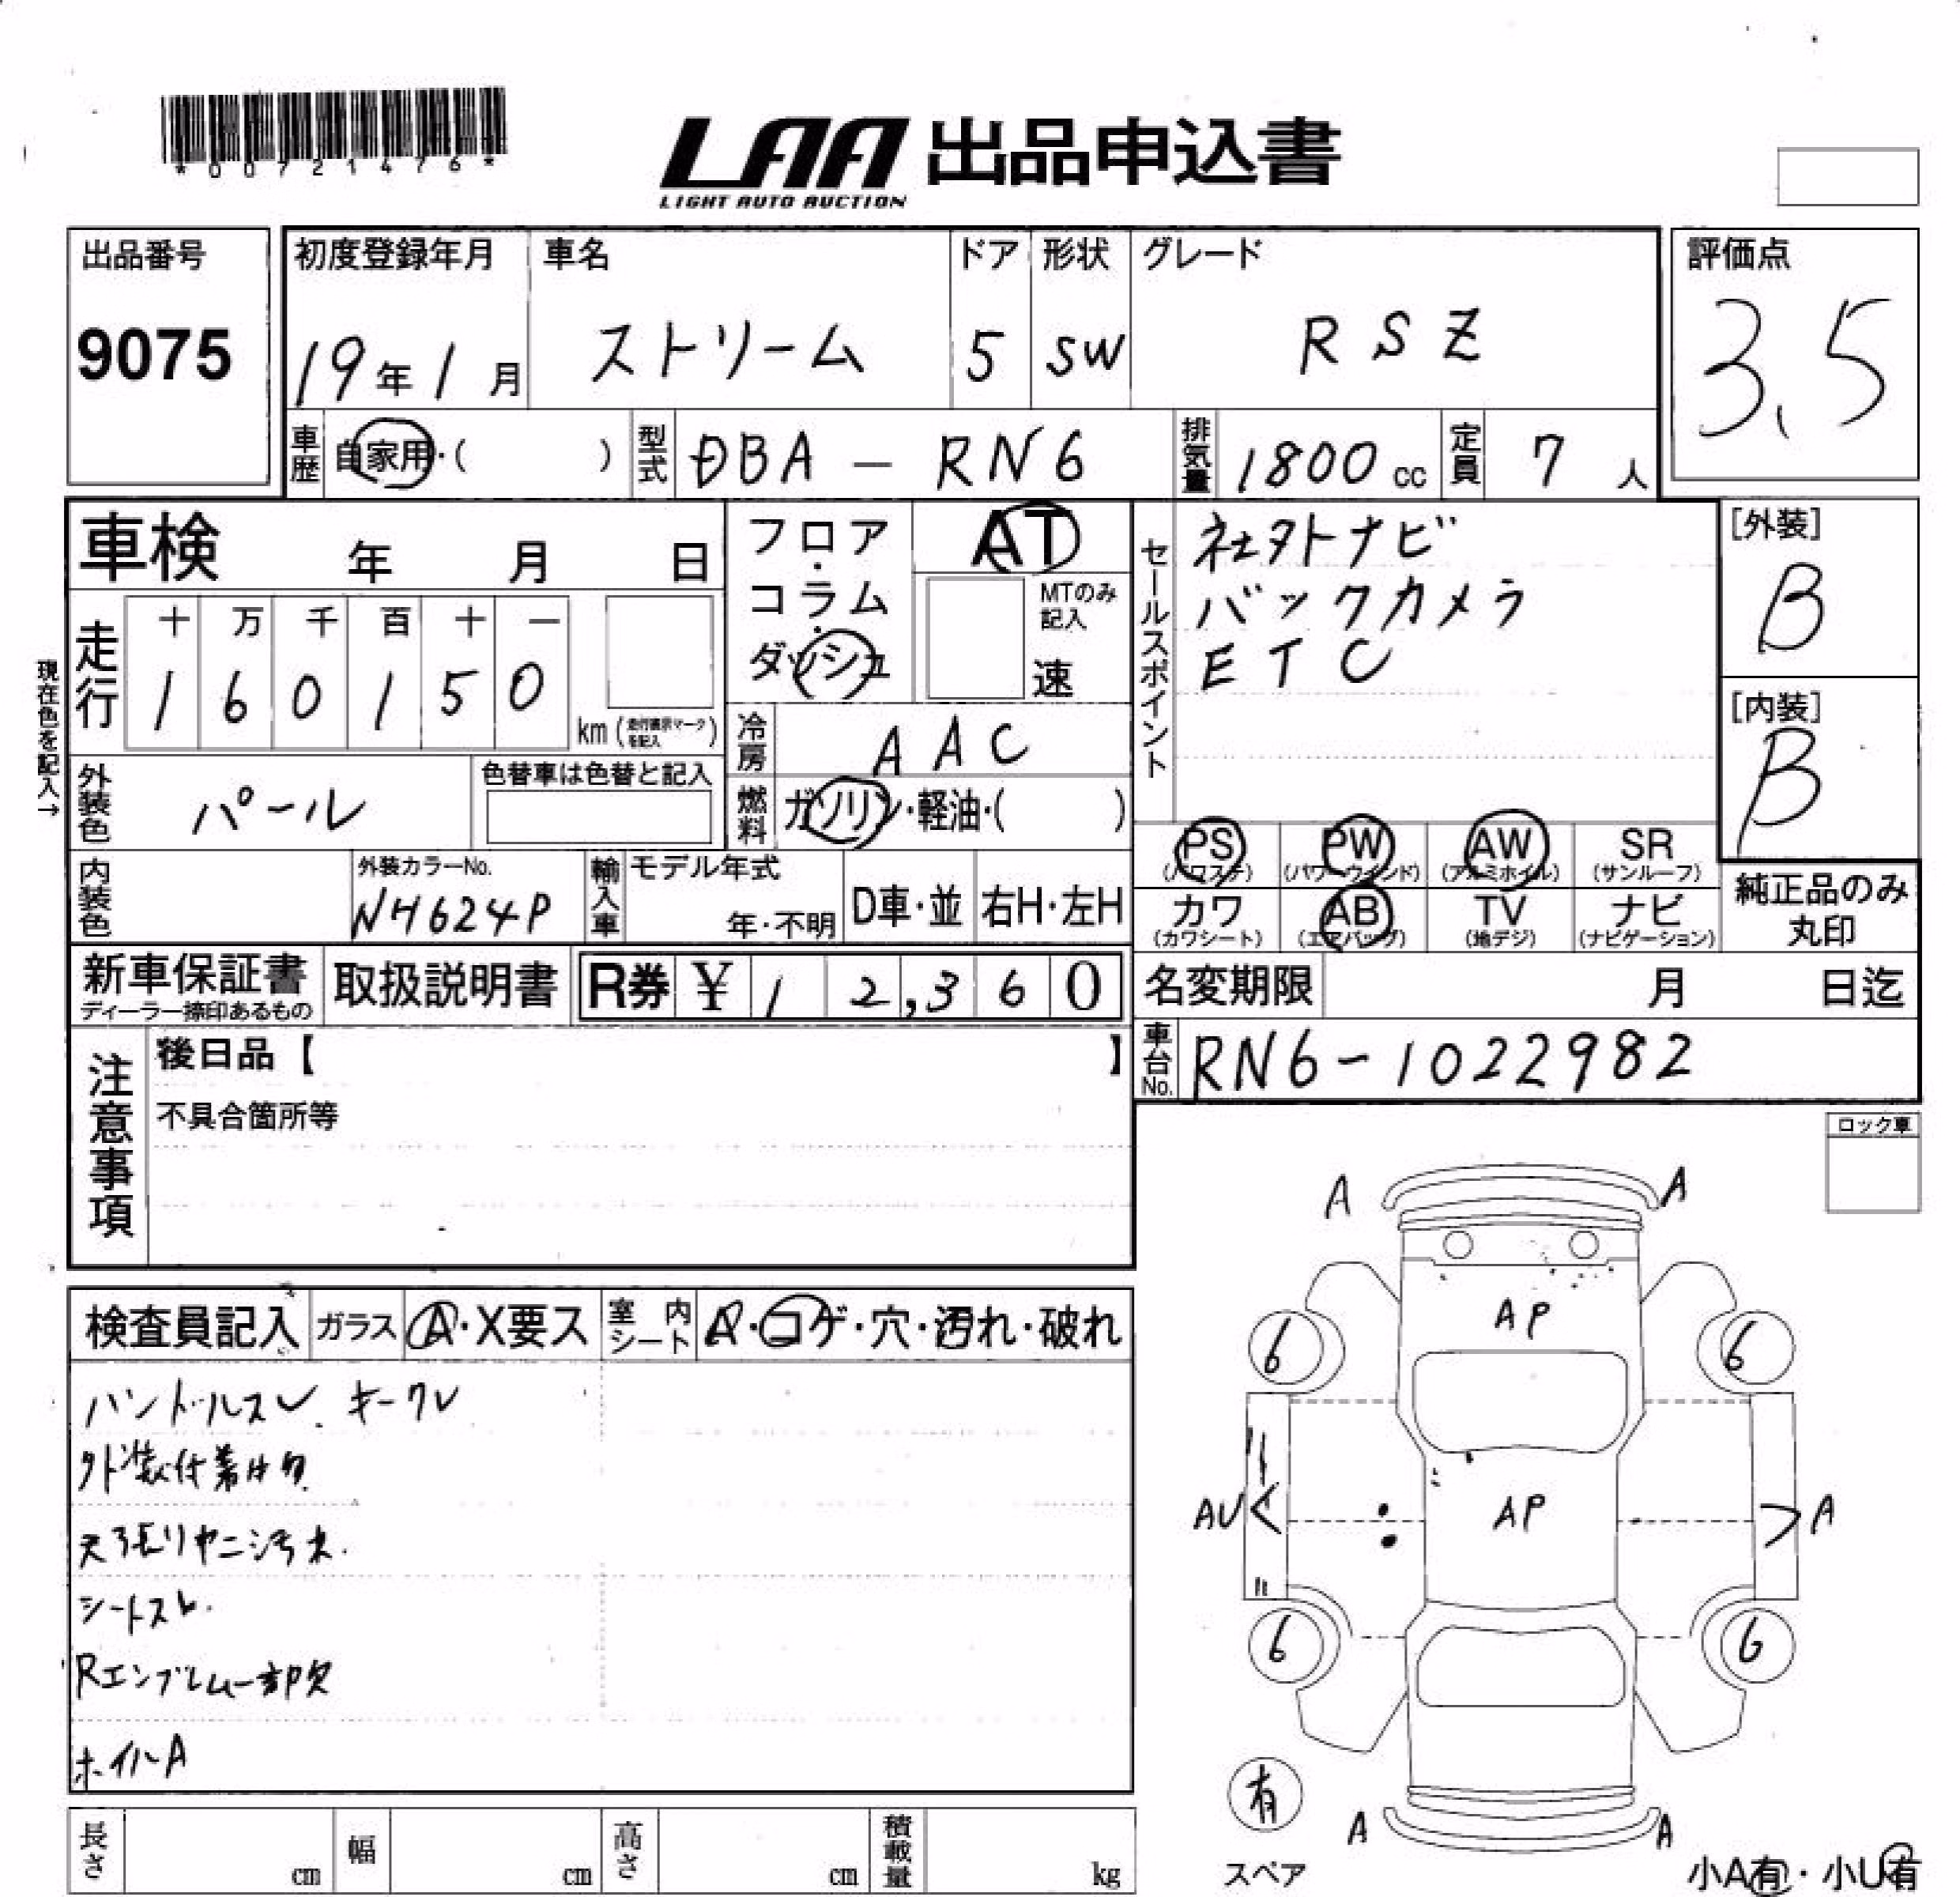 *00721476*
LAA 出品申込書
LIGHT AUTO AUCTION
出品番号
9075
初度登録年月
19年1月
車名
ストリーム
ドア
5
形状
SW
グレード
RSZ
評価点
3.5
車歴
自家用・( )
型式
DBA-RN6
排気量
1800cc
定員
7人
車検 年 月 日
フロア・コラム・ダッシュ
AT
MTのみ記入
速
セールスポイント
社外ナビ
バックカメラ
ETC
[外装]
B
[内装]
B
現在色を記入→
走行
十万千百十一
160150
km(走行表示マークを記入)
冷房
AAC
外装色
パール
色替車は色替と記入
燃料
ガソリン・軽油・( )
PS
(パワステ)
PW
(パワーウインド)
AW
(アルミホイル)
SR
(サンルーフ)
カワ
(カワシート)
AB
(エアバッグ)
TV
(地デジ)
ナビ
(ナビゲーション)
純正品のみ丸印
内装色
外装カラーNo.
NH624P
輸入車
モデル年式
年・不明
D車・並
右H・左H
新車保証書
ディーラー捺印あるもの
取扱説明書
R券 ¥12,360
名変期限 月 日迄
車台No.
RN6-1022982
注意事項
後日品【 】
不具合箇所等
ロック車
検査員記入
ガラス
A・X要ス
室内シート
A・コゲ・穴・汚れ・破れ
ハンドルスレ、キークレ
外装付着物
天張りヤニ汚れ.
シートスレ.
Rエンブレム一部欠
ホイルA
A
A
AP
6
6
AU
AP
A
6
6
有
スペア
A
A
小A有・小U有
長さ cm
幅 cm
高さ cm
積載量 kg